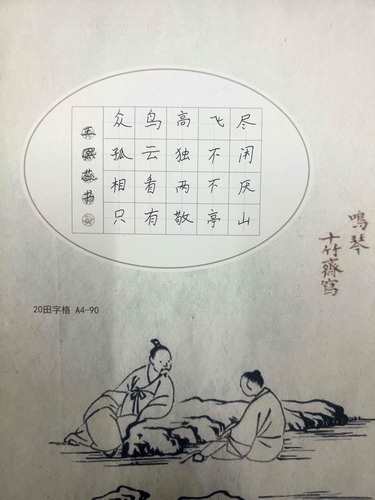 众鸟高飞尽
孤云独不闲
相看两不厌
只有敬亭山
书
鳴琴
十竹齋寫
20田字格 A4-90